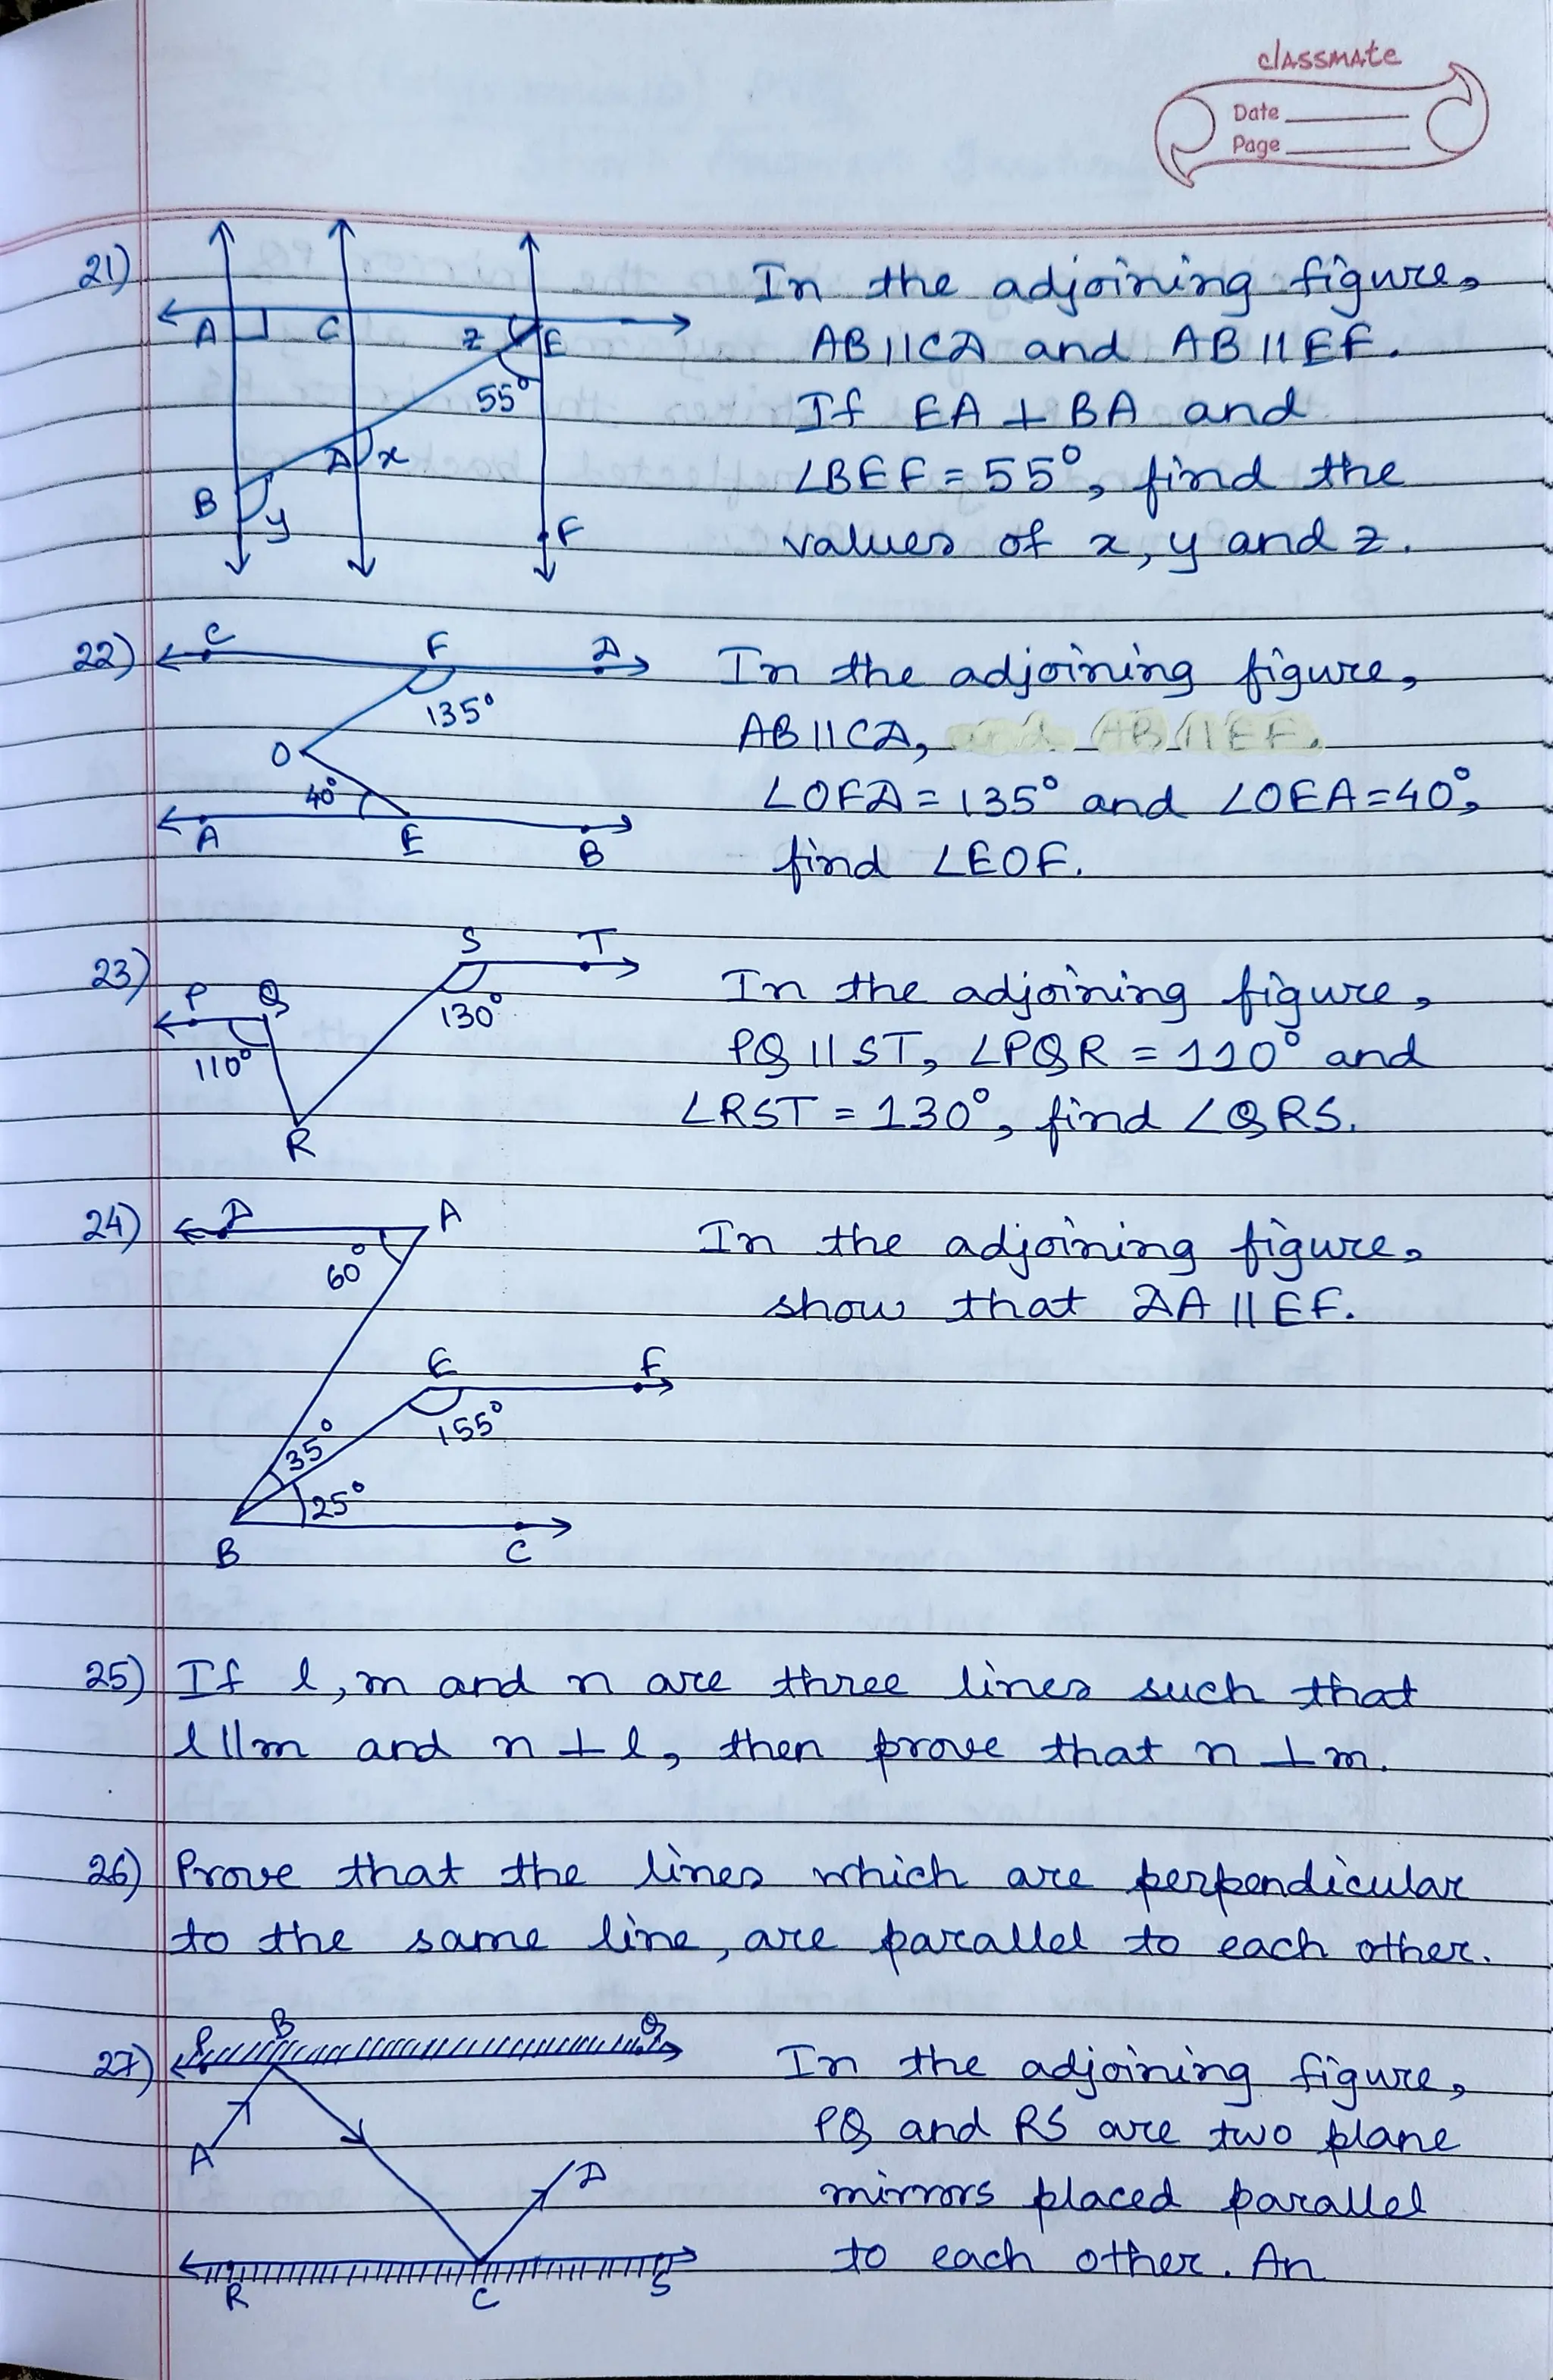 classmate
Date
Page
21)
A
C
z
E
55°
D
x
B
y
F
In the adjoining figure,
AB||CD and AB||EF.
If EA ⊥ BA and
∠BEF = 55°, find the
values of x, y and z.
22)
C
F
D
135°
O
40°
A
E
B
In the adjoining figure,
AB||CD,
∠OFD = 135° and ∠OEA = 40°,
find ∠EOF.
23)
S
T
P
Q
130°
110°
R
In the adjoining figure,
PQ || ST, ∠PQR = 110° and
∠RST = 130°, find ∠QRS.
24)
D
A
60°
E
F
155°
35°
25°
B
C
In the adjoining figure,
show that DA || EF.
25) If l, m and n are three lines such that
l||m and n ⊥ l, then prove that n ⊥ m.
26) Prove that the lines which are perpendicular
to the same line, are parallel to each other.
27)
P
B
Q
A
D
R
C
S
In the adjoining figure,
PQ and RS are two plane
mirrors placed parallel
to each other. An